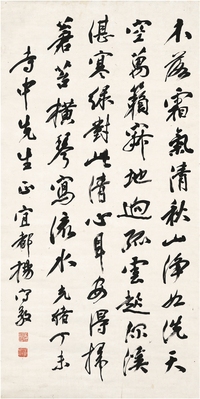 木落霜氣清秋山淨如洗天
空萬籟寂地迥孤雲起深溪
湛寒綠對此清心耳安得掃
蒼苔橫琴寫流水 光緒丁未
中先生正 宜都楊守敬